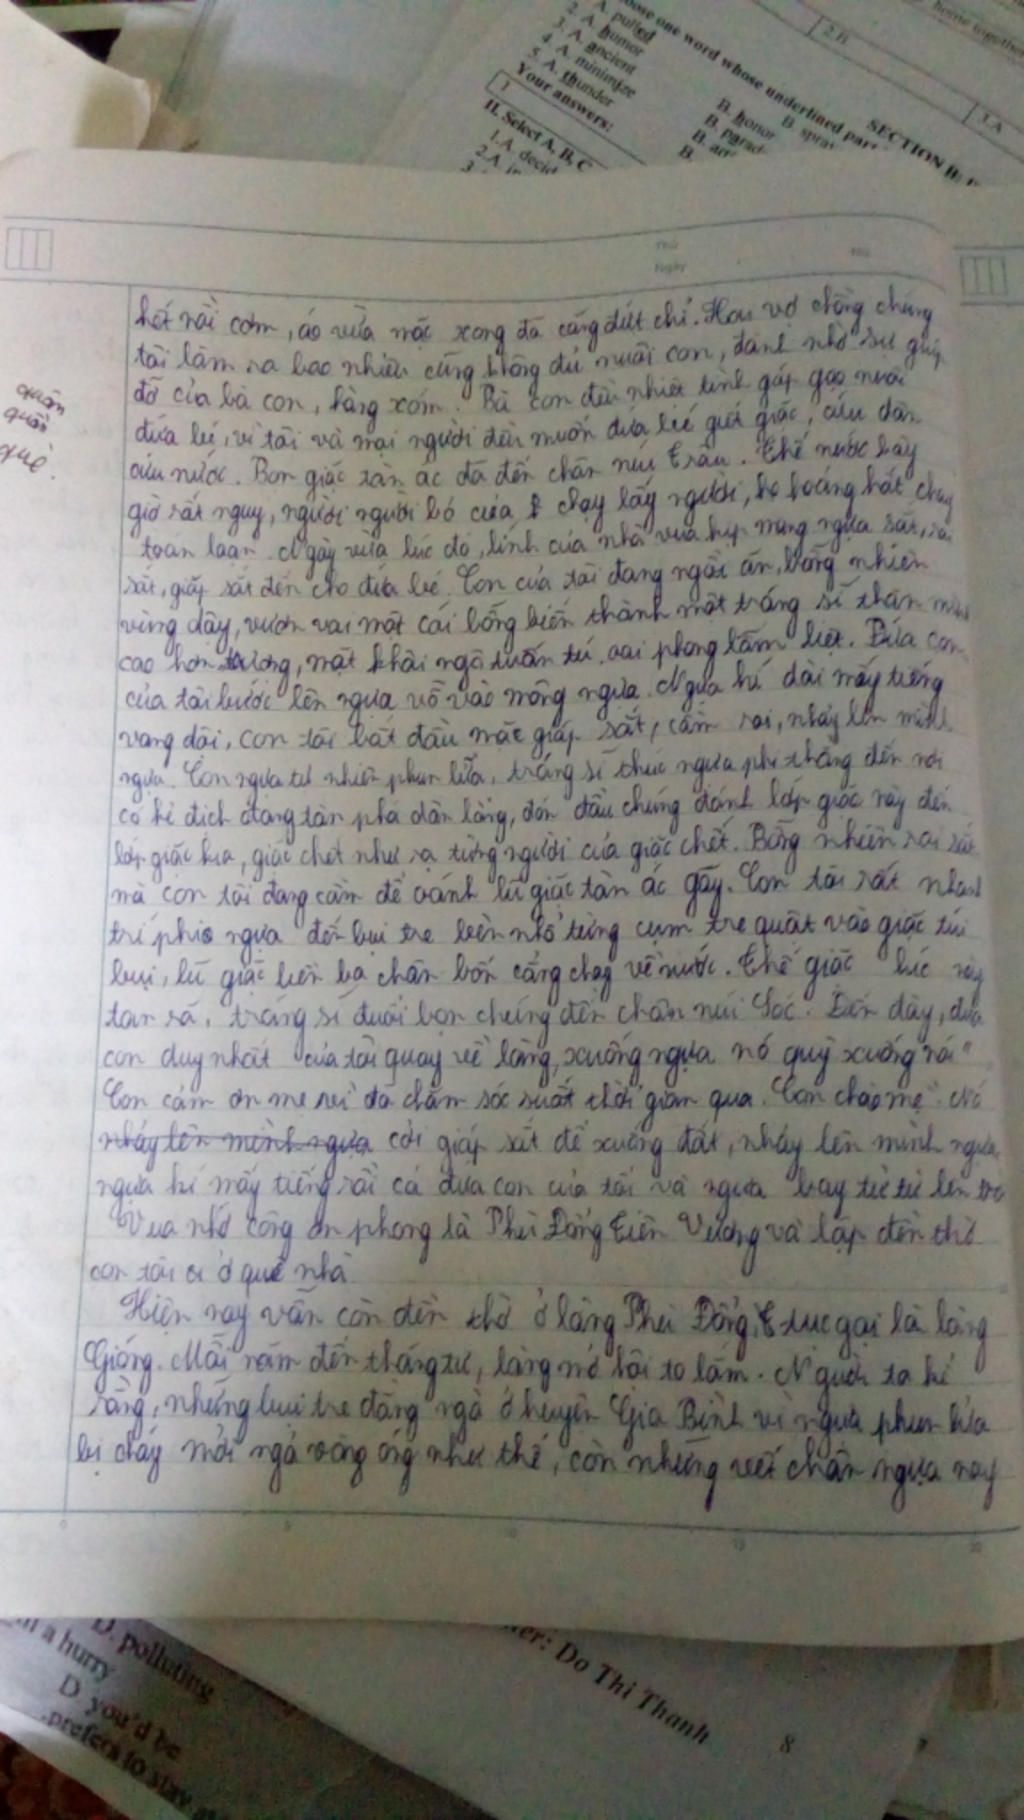 oose one word whose underlined part
SECTION B:
A. pulled
2. A. humor
3. A. ancient
4. A. minimize
5. A. thunder
B. spray
B. honor
B. parad
B.
Your answers:
1
2.B
3.A
home together
II. Select A, B, C
1.A. decid
2.A. in
3
Thứ
Ngày
quân
quần
quê
hết rồi cơm, áo vừa mặc xong đã căng đứt chỉ. Hai vợ chồng chúng
tôi làm ra bao nhiêu cũng không đủ nuôi con, đành nhờ sự giúp
đỡ của bà con, hàng xóm. Bà con đều nhiệt tình góp gạo nuôi
đứa bé, vì tôi và mọi người đều muốn đứa bé giết giặc, cứu dân
cứu nước. Bọn giặc tàn ác đã đến chân núi Trâu. Thế nước bấy
giờ rất nguy, người người bỏ của chạy lấy người, họ hoảng hốt chạy
toán loạn. Ngay vừa lúc đó, lính của nhà vua kịp mang ngựa sắt, roi
sắt, giáp sắt đến cho đứa bé. Con của tôi đang ngồi ăn, bỗng nhiên
vùng dậy, vươn vai một cái bỗng biến thành một tráng sĩ thân mình
cao hơn trượng, mặt khôi ngô tuấn tú, oai phong lẫm liệt. Đứa con
của tôi bước lên ngựa vỗ vào mông ngựa. Ngựa hí dài mấy tiếng
vang dội, con tôi bắt đầu mặc giáp sắt, cầm roi, nhảy lên mình
ngựa. Con ngựa tự nhiên phun lửa, tráng sĩ thúc ngựa phi thẳng đến nơi
có kẻ địch đang tàn phá dân làng, đón đầu chúng đánh lớp giặc này đến
lớp giặc kia, giặc chết như rạ từng người của giặc chết. Bỗng nhiên roi sắt
mà con tôi đang cầm để oánh lũ giặc tàn ác gãy. Con tôi rất nhanh
trí phi ngựa đến bụi tre bèn nhổ từng cụm tre quật vào giặc túi
bụi, lũ giặc liền ba chân bốn cẳng chạy về nước. Thế giặc lúc này
tan rã, tráng sĩ đuổi bọn chúng đến chân núi Sóc. Đến đây, đứa
con duy nhất của tôi quay về làng, xuống ngựa nó quỳ xuống nói "
Con cảm ơn mẹ đã chăm sóc suốt thời gian qua. Con chào mẹ". Nó
nhảy lên mình ngựa cởi giáp sắt để xuống đất, nhảy lên mình ngựa,
ngựa hí mấy tiếng rồi cả đứa con của tôi và ngựa bay từ từ lên trời
Vua nhớ công ơn phong là Phù Đổng Tiên Vương và lập đền thờ
con tôi ở quê nhà
Hiện nay vẫn còn đền thờ ở làng Phù Đổng, tục gọi là làng
Gióng. Mỗi năm đến tháng tư, làng mở hội to lắm. Người ta kể
rằng, những bụi tre đằng ngà ở huyện Gia Bình vì ngựa phun lửa
bị cháy mới ngả vàng óng như thế, còn những vết chân ngựa nay
0
5
10
15
20
in a hurry
D. polluting
D you'd be
prefers to stay at
er: Do Thi Thanh
8